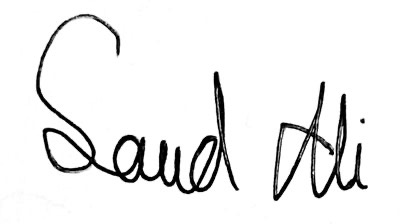 Saud Ali